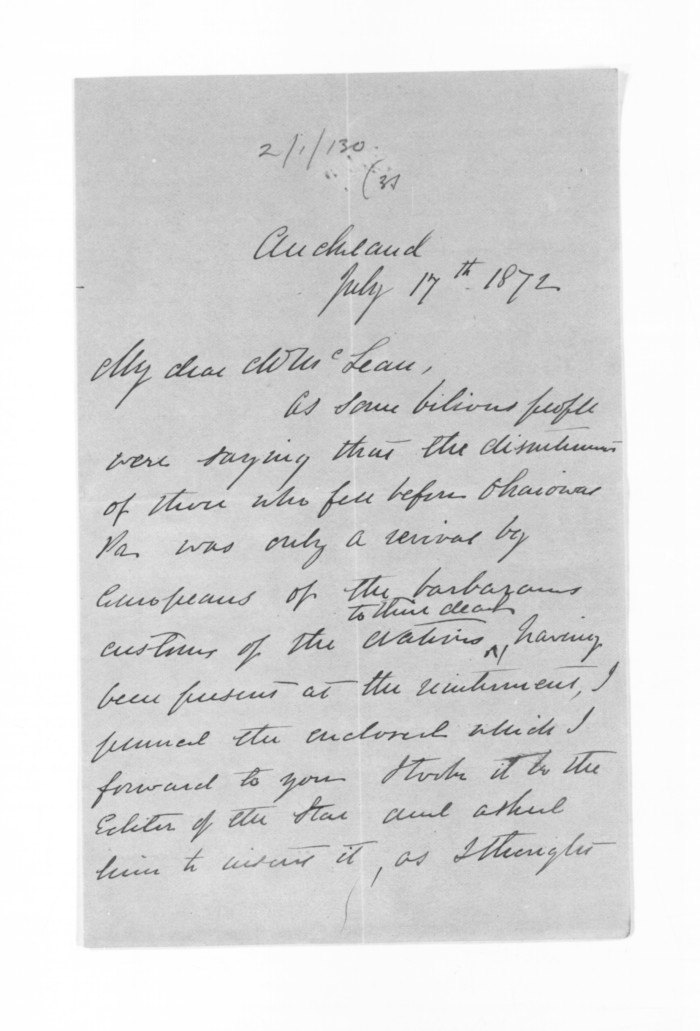 2/1/130
(31
Auckland
July 17th 1872
My dear Mr McLean,
As some bilious people
were saying that the disinterment
of those who fell before Ohaiowae
Pa was only a revival by
Europeans of the barbarous
to their dead
customs of the Natives, having
been present at the reinterment, I
penned the enclosed which I
forward to you I took it to the
Editor of the Star and asked
him to insert it, as I thought